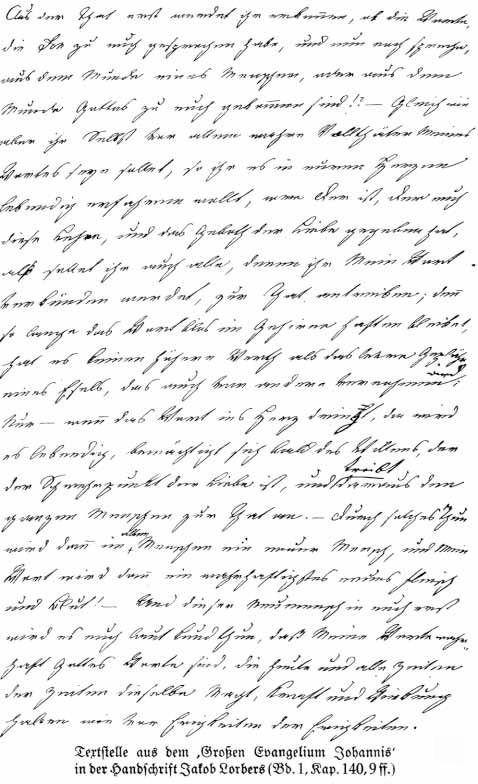 Aus der That erst werdet ihr erkennen, ob die Worte,
die Ich zu euch gesprochen habe, und nun noch spreche,
aus dem Munde eines Menschen, oder aus dem
Munde Gottes zu euch gekommen sind!? — Gleich wie
aber ihr Selbst vor allem wahre Vollthäter Meines
Wortes seyn sollet, so ihr es in euren Herzen
lebendig erfahren wollt, wer Der ist, Der euch
diese Lehre, und das Geboth der Liebe gegeben hat,
also sollet ihr auch alle, denen ihr Mein Wort
verkünden werdet, zur That antreiben; denn
so lange das Wort blos im Gehirne haften bleibet,
hat es keinen höhern Werth als das leere Geplärr
eines Esels, das auch von andern vernommen wird;
Nur — wenn das Wort ins Herz dringt, da wird
es lebendig, bemächtigt sich bald des Willens, der
der Schwerpunkt der Liebe ist, und treibt daraus den
ganzen Menschen zur That an. — Durch solches Thun
wird dann im alten Menschen ein neuer Mensch, und Mein
Wort wird dann ein wahrhaftigstes neues Fleisch
und Blut! — Und dieser neue Mensch in euch erst
wird es euch laut kund thun, daß Meine Worte wahr-
haft Gottes Worte sind, die heute und alle Zeiten
der Zeiten dieselbe Macht, Kraft und Wirkung
haben wie vor Ewigkeiten der Ewigkeiten.
Textstelle aus dem ‚Großen Evangelium Johannis‘
in der Handschrift Jakob Lorbers (Bd. 1, Kap. 140, 9 ff.)